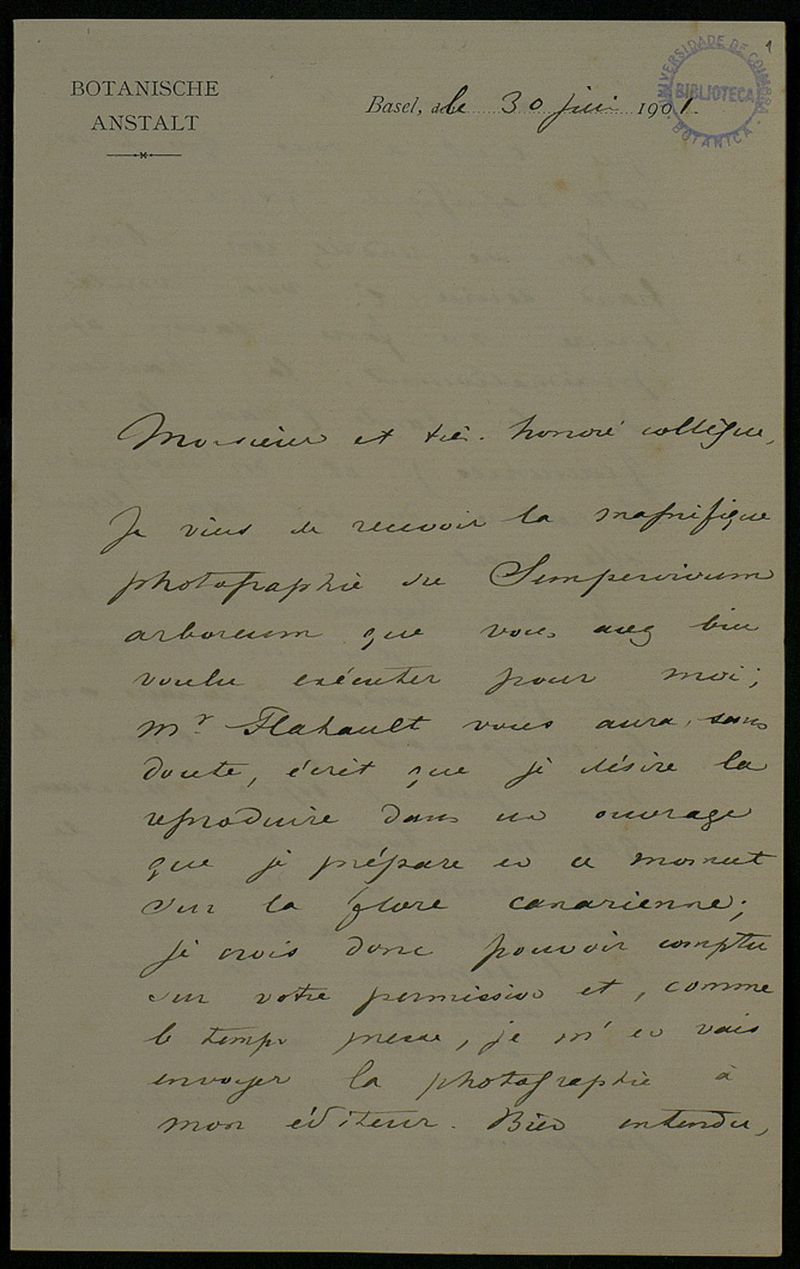 1
UNIVERSIDADE DE COIMBRA
BIBLIOTECA
BOTANICA
BOTANISCHE
ANSTALT
Basel, le 30 juin 1901.
Monsieur et très honoré collègue,
Je viens de recevoir la magnifique
photographie du Sempervivum
arboreum que vous avez bien
voulu exécuter pour moi;
Mr Flahault vous aura, sans
doute, écrit que je désire la
reproduire dans un ouvrage
que je prépare en ce moment
sur la flore canarienne;
je crois donc pouvoir compter
sur votre permission et, comme
le temps presse, je m'en vais
envoyer la photographie à
mon éditeur. Bien entendu,